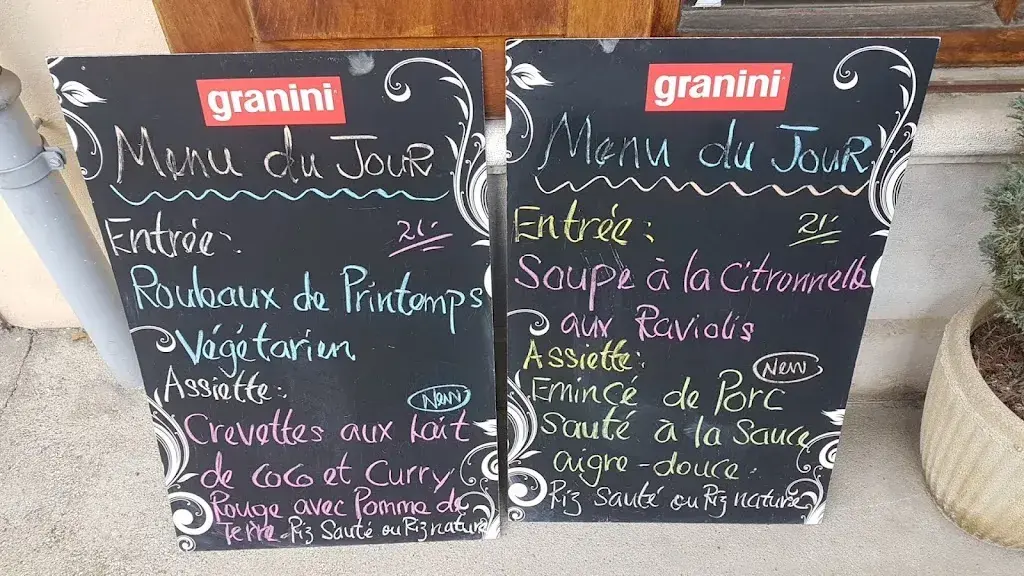 granini
Menu du Jour
Entrée: 21.-
Rouleaux de Printemps
Végétarien
Assiette: New
Crevettes aux lait
de coco et Curry
Rouge avec Pomme de
Terre - Riz Sauté ou Riz nature
granini
Menu du Jour
Entrée: 21.-
Soupe à la Citronnelle
aux Raviolis
Assiette: New
Emincé de Porc
Sauté à la Sauce
aigre-douce.
Riz Sauté ou Riz nature